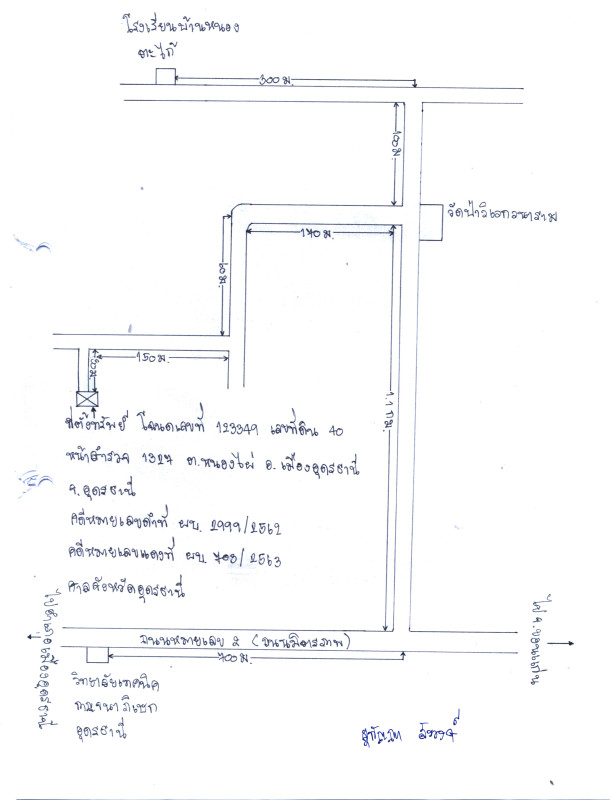 โรงเรียนบ้านหนอง
ตะไก้
300 ม.
100 ม.
วัดป่าวิเวกวนาราม
170 ม.
60 ม.
150 ม.
20 ม.
1.1 กม.
ที่ตั้งทรัพย์ โฉนดเลขที่ 123349 เลขที่ดิน 40
หน้าสำรวจ 1327 ต.หนองไผ่ อ.เมืองอุดรธานี
จ.อุดรธานี
คดีหมายเลขดำที่ ผบ. 2999/2562
คดีหมายเลขแดงที่ ผบ. 703/2563
ศาลจังหวัดอุดรธานี
ไปอำเภอเมืองอุดรธานี
ถนนหมายเลข 2 (ถนนมิตรภาพ)
ไป จ.ขอนแก่น
700 ม.
วิทยาลัยเทคนิค
กาญจนาภิเษก
อุดรธานี